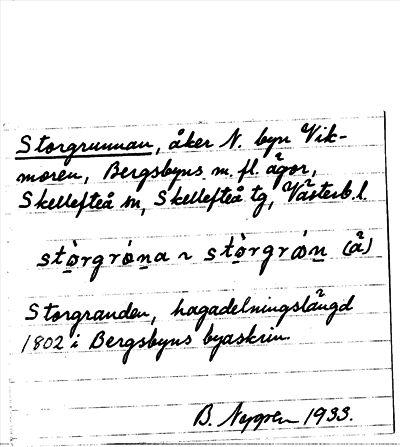 Storgrunnan, åker N. byn Vik-
moren, Bergsbyns m. fl. ägor,
Skellefteå sn, Skellefteå tg, Västerb. l.
Storgranden, hagadelningslängd
1802 i Bergsbyns byaskrin.
B. Nygren 1933.